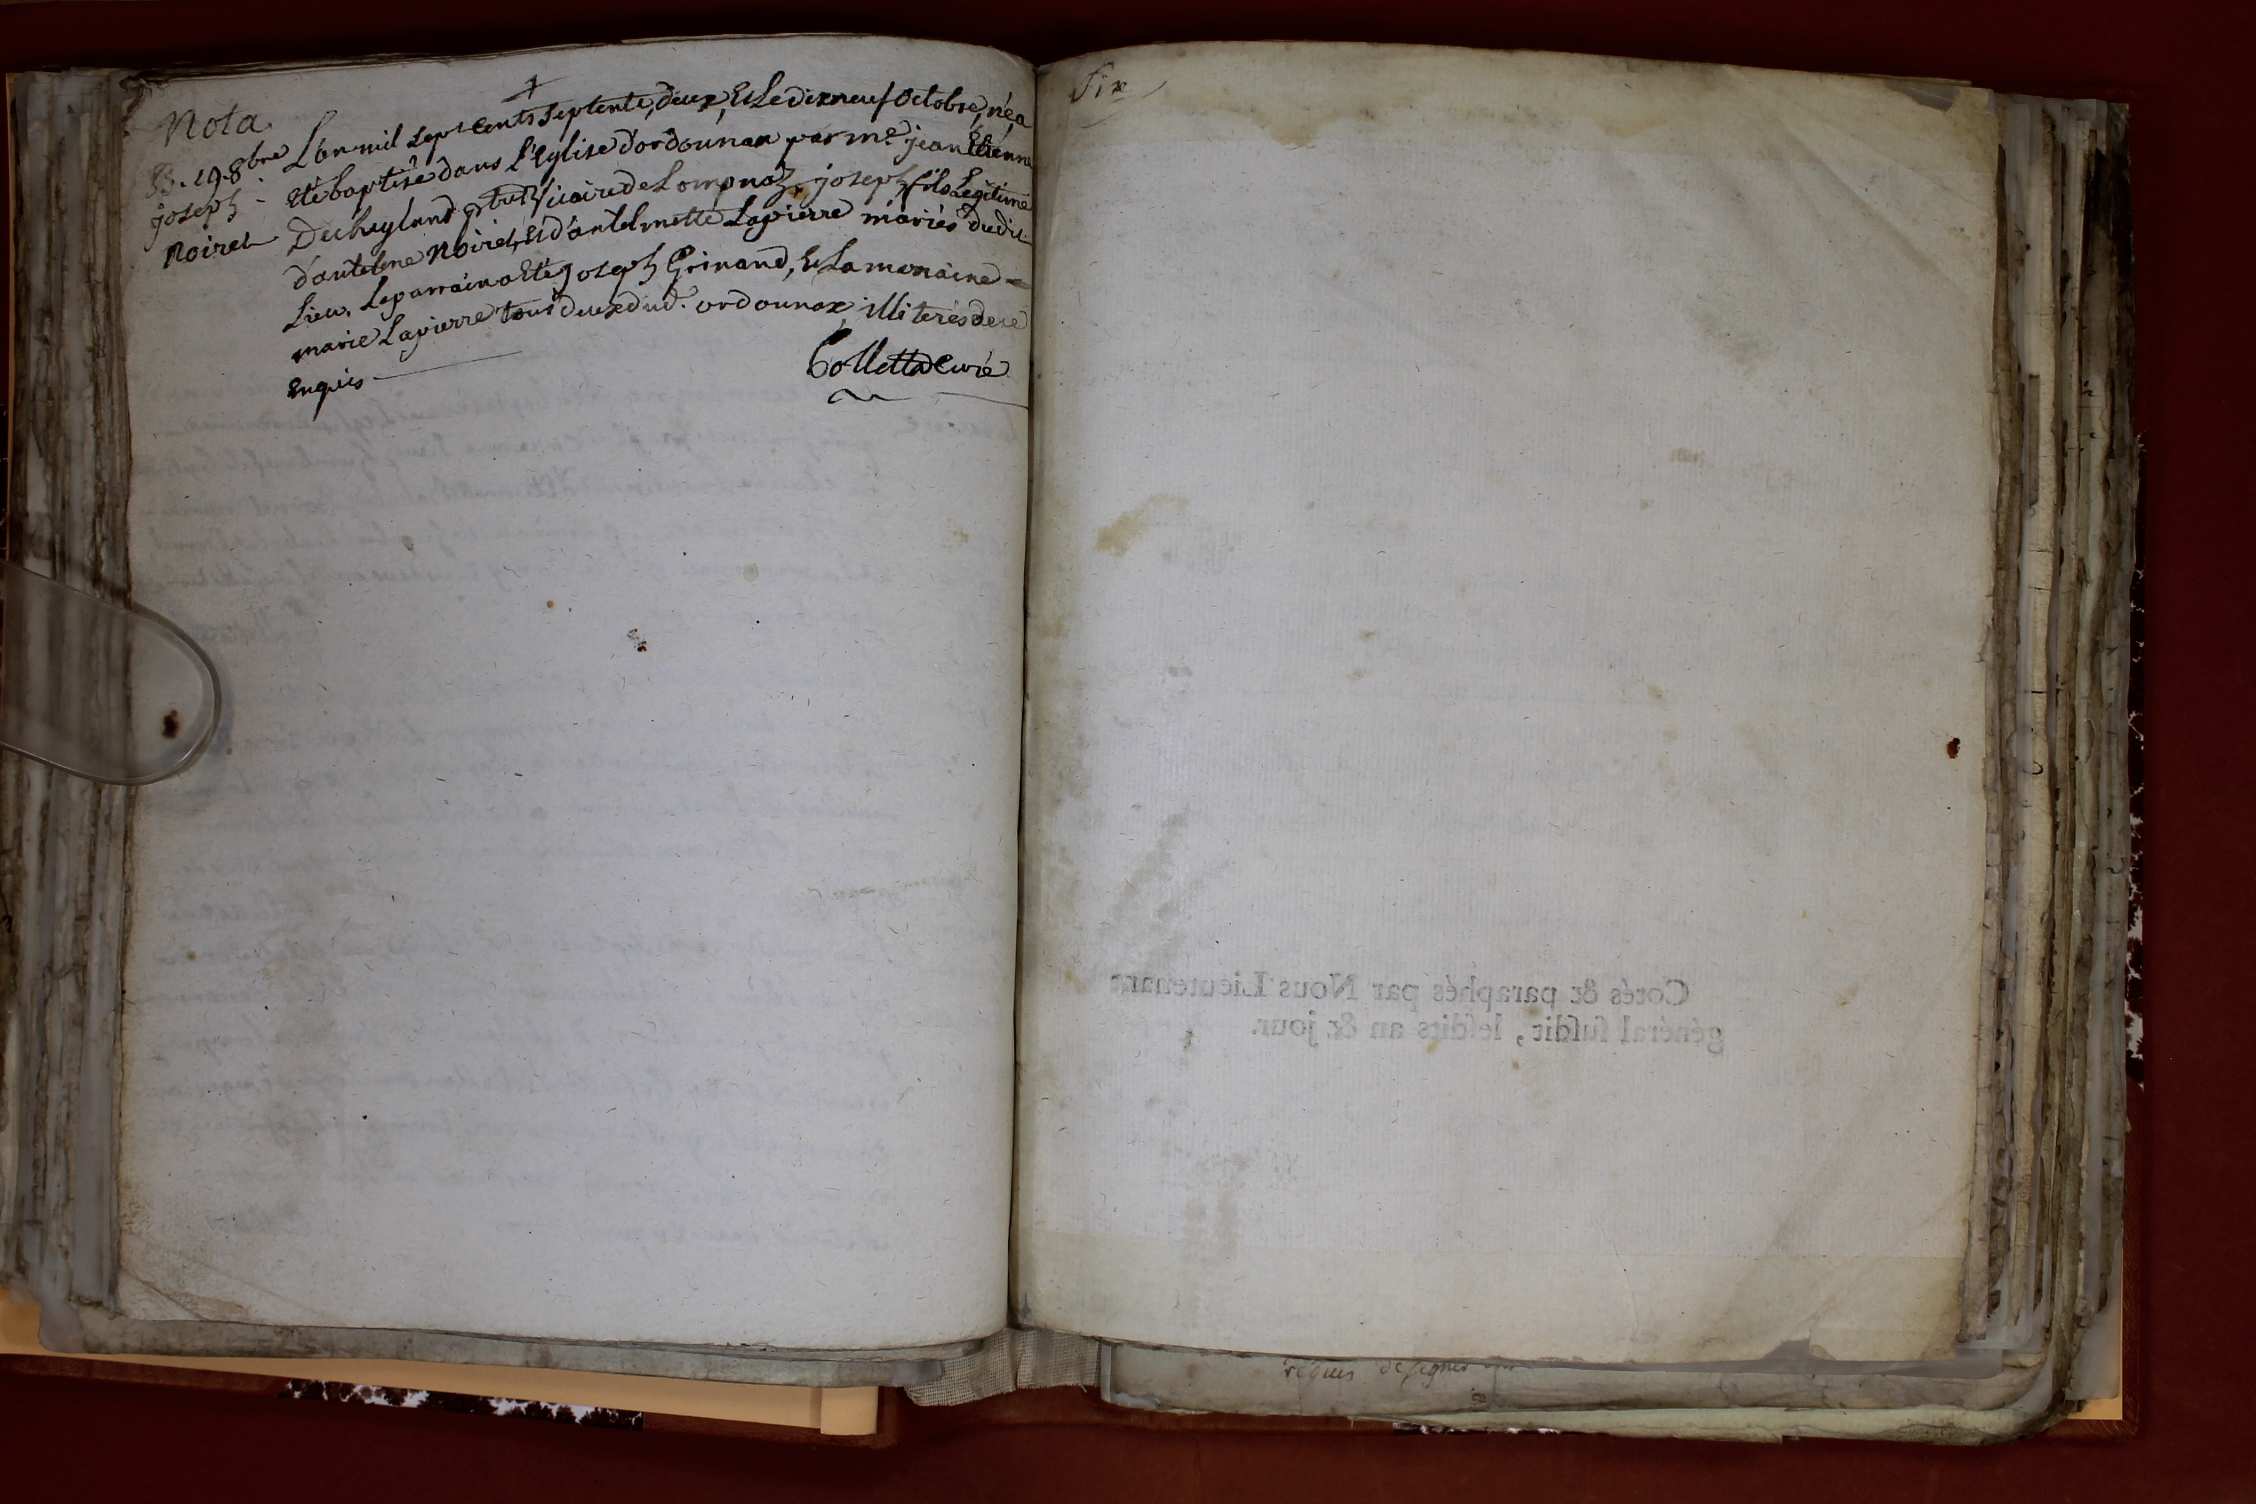 Nota
B. 19. 8bre
joseph
Noiret
L'an mil sept cents septente, deux, Et Le dix neuf Octobre, né, a
Eté baptisé dans L'Eglise d'ordounax par me jean Etienne
Vicaire de Lompnaz, joseph fils Legitime
d'antelme Noiret, Et d'antelmette Lapierre mariés dudit
Lieu, Le parrain a Eté joseph Grinand, Et La maraine
marie Lapierre tous deux dud. ordounax, illiterés de ce
Enquis
Collettaz Curé
Six
Cotés & paraphés par Nous Lieutenant
général ſuſdit, leſdits an & jour.
requis de signer